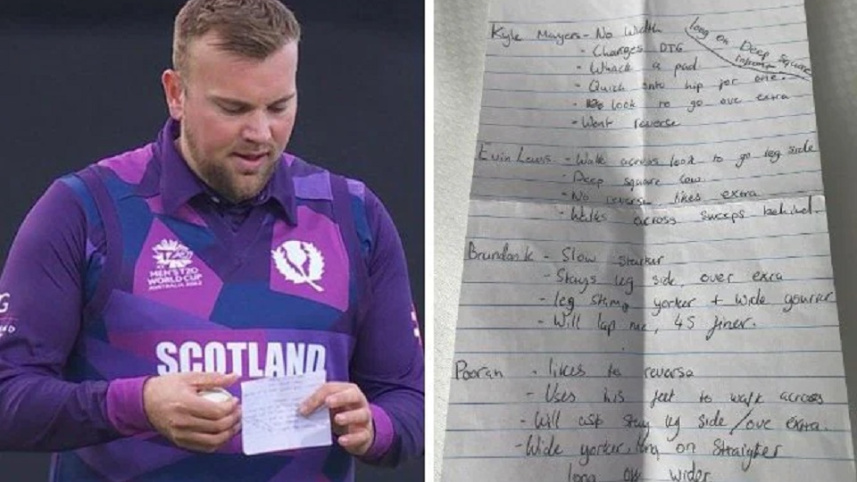 MEN'S T20
WORLD CUP
AUSTRALIA 2022
SCOTLAND
Kyle Mayers - No Width
- Changes DTG
- Whack a pad
- Quick into hip for one.
- look to go ove extra
- Wont reverse
long on Deep Square
Evin Lewis - Walk across look to go leg side
- Deep square cow.
- No reverse, likes extra
- Walks across sweeps behind.
Brandon k - Slow starter
- Stays leg side, over extra
- leg stump yorker + Wide yourker
- Will lap me, 45 finer.
Pooran - likes to reverse
- Uses his feet to walk across
- Will stay leg side/ove extra.
- Wide yorker, long on straighter
long off wider